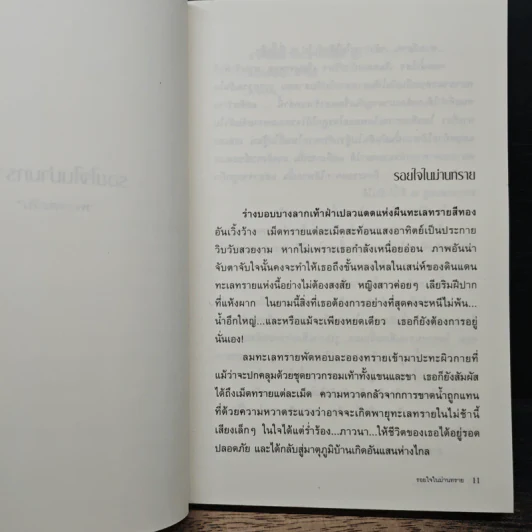 รอยใจในม่านทราย
ร่างบอบบางลากเท้าฝ่าเปลวแดดแห่งผืนทะเลทรายสีทอง
อันเวิ้งว้าง เม็ดทรายแต่ละเม็ดสะท้อนแสงอาทิตย์เป็นประกาย
วิบวับสวยงาม หากไม่เพราะเธอกำลังเหนื่อยอ่อน ภาพอันน่า
จับตาจับใจนั้นคงจะทำให้เธอถึงขั้นหลงใหลในเสน่ห์ของดินแดน
ทะเลทรายแห่งนี้อย่างไม่ต้องสงสัย หญิงสาวค่อยๆ เลียริมฝีปาก
ที่แห้งผาก ในยามนี้สิ่งที่เธอต้องการอย่างที่สุดคงจะหนีไม่พ้น...
น้ำอึกใหญ่...และหรือแม้จะเพียงหยดเดียว เธอก็ยังต้องการอยู่
นั่นเอง!
ลมทะเลทรายพัดหอบละอองทรายเข้ามาปะทะผิวกายที่
แม้ว่าจะปกคลุมด้วยชุดยาวกรอมเท้าทั้งแขนและขา เธอก็ยังสัมผัส
ได้ถึงเม็ดทรายแต่ละเม็ด ความหวาดกลัวจากการขาดน้ำถูกแทน
ที่ด้วยความหวาดระแวงว่าอาจจะเกิดพายุทะเลทรายในไม่ช้านี้
เสียงเล็กๆ ในใจได้แต่ร่ำร้อง...ภาวนา...ให้ชีวิตของเธอได้อยู่รอด
ปลอดภัย และได้กลับสู่มาตุภูมิบ้านเกิดอันแสนห่างไกล
รอยใจในม่านทราย 11